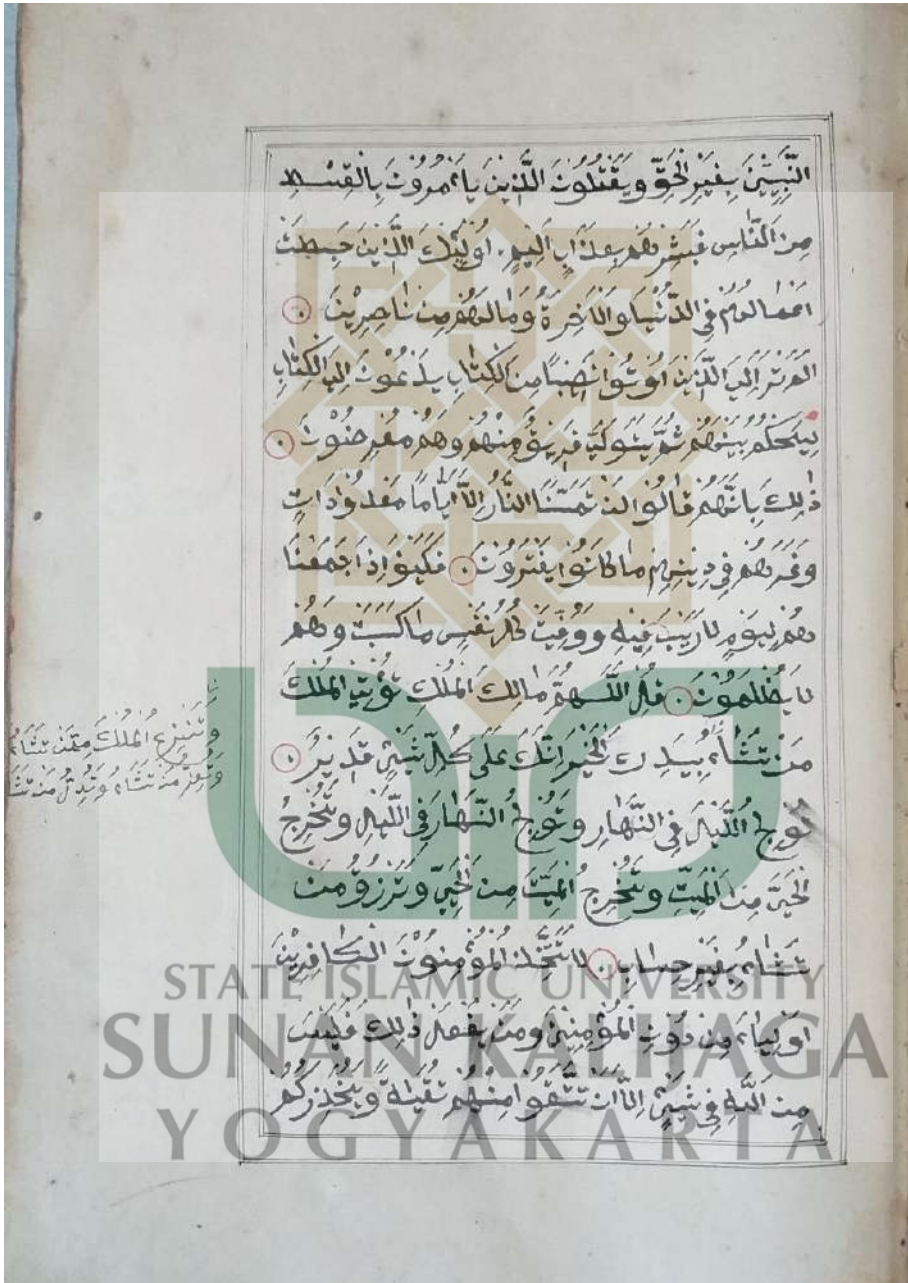 النَّبِيِّيْنَ بِغَيْرِ الْحَقِّ وَيَقْتُلُوْنَ الَّذِيْنَ يَاءْمُرُوْنَ بِالْقِسْطِ
مِنَ النَّاسِ فَبَشِّرْهُمْ بِعَذَابٍ اَلِيْمٍ. اُولٰٓئِكَ الَّذِيْنَ حَبِطَتْ
اَعْمَالُهُمْ فِى الدُّنْيَا وَالْاٰخِرَةِ وَمَالَهُمْ مِنْ نَاصِرِيْنَ
اَلَمْ تَرَ اِلَى الَّذِيْنَ اُوْتُوْا نَصِيْبًا مِنَ الْكِتَابِ يُدْعَوْنَ اِلَى الْكِتَابِ
لِيَحْكُمَ بَيْنَهُمْ ثُمَّ يَتَوَلَّى فَرِيْقٌ مِنْهُمْ وَهُمْ مُعْرِضُوْنَ
ذٰلِكَ بِاَنَّهُمْ قَالُوْا لَنْ تَمَسَّنَا النَّارُ اِلَّا اَيَّامًا مَعْدُوْدَاتٍ
وَغَرَّهُمْ فِى دِيْنِهِمْ مَا كَانُوْا يَفْتَرُوْنَ فَكَيْفَ اِذَا جَمَعْنَا
هُمْ لِيَوْمٍ لَا رَيْبَ فِيْهِ وَوُفِّيَتْ كُلُّ نَفْسٍ مَا كَسَبَتْ وَهُمْ
لَا يُظْلَمُوْنَ قُلِ اللّٰهُمَّ مَالِكَ الْمُلْكِ تُؤْتِى الْمُلْكَ
مَنْ تَشَاءُ بِيَدِكَ الْخَيْرُ اِنَّكَ عَلَى كُلِّ شَيْءٍ قَدِيْرٌ
تُوْلِجُ الَّيْلَ فِى النَّهَارِ وَتُوْلِجُ النَّهَارَ فِى اللَّيْلِ وَتُخْرِجُ
الْحَيَّ مِنَ الْمَيِّتِ وَتُخْرِجُ الْمَيِّتَ مِنَ الْحَيِّ وَتَرْزُقُ مَنْ
تَشَاءُ بِغَيْرِ حِسَابٍ لَا يَتَّخِذِ الْمُؤْمِنُوْنَ الْكَافِرِيْنَ
اَوْلِيَاءَ مِنْ دُوْنِ الْمُؤْمِنِيْنَ وَمَنْ يَفْعَلْ ذٰلِكَ فَلَيْسَ
مِنَ اللّٰهِ فِى شَيْءٍ اِلَّا اَنْ تَتَّقُوْا مِنْهُمْ تُقٰىةً وَيُحَذِّرُكُمُ
وَتَنْزِعُ الْمُلْكَ مِمَّنْ تَشَاءُ
وَتُعِزُّ مَنْ تَشَاءُ وَتُذِلُّ مَنْ تَشَاءُ
STATE ISLAMIC UNIVERSITY
SUNAN KALIJAGA
YOGYAKARTA